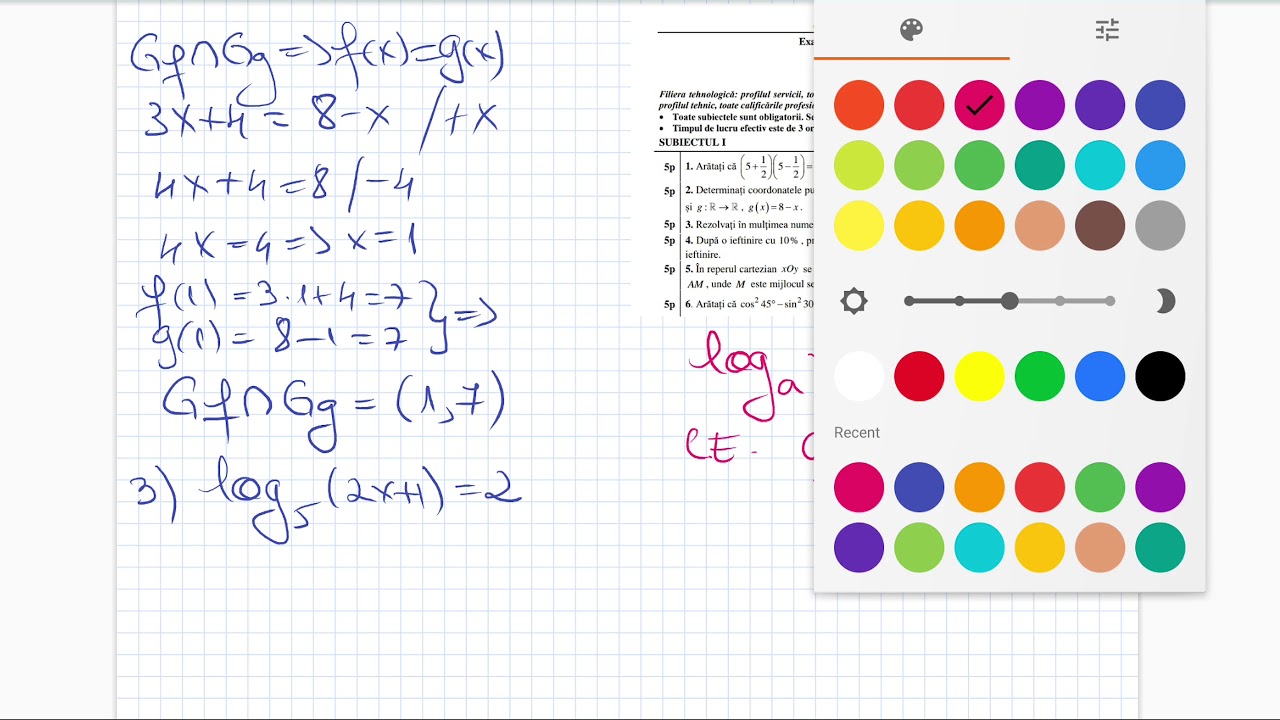 Gf∩Gg => f(x)=g(x)
3x+4 = 8-x /+x
4x+4=8 /-4
4x=4 => x=1
f(1) = 3·1+4=7
g(1) = 8-1=7 } =>
Gf∩Gg = (1,7)
3) log₅(2x+1)=2
Exa
Filiera tehnologică: profilul servicii, to
profilul tehnic, toate calificările profesi
• Toate subiectele sunt obligatorii. Se
• Timpul de lucru efectiv este de 3 or
SUBIECTUL I
5p 1. Arătați că (5+1/2)(5-1/2)=
5p 2. Determinați coordonatele pu
și g:ℝ→ℝ, g(x)=8-x.
5p 3. Rezolvați în mulțimea nume
5p 4. După o ieftinire cu 10%, pr
ieftinire.
5p 5. În reperul cartezian xOy se
AM, unde M este mijlocul se
5p 6. Arătați că cos² 45° - sin² 30
log a
C.E.
Recent